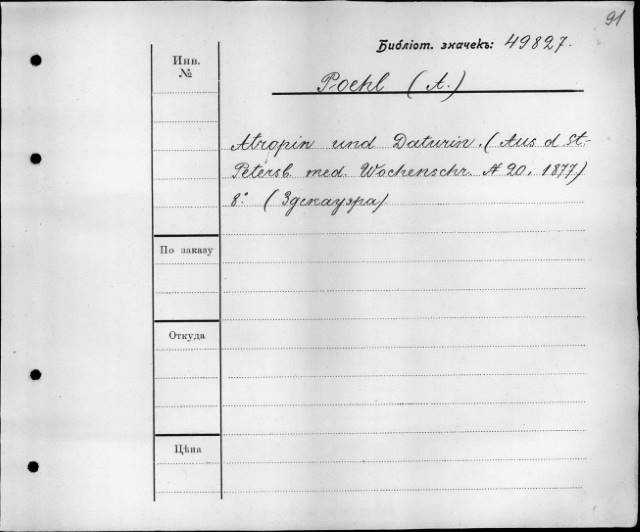 91
Библіот. значекъ: 49827.
Инв.
№
Poehl (A.)
Atropin und Daturin. (Aus d St.-
Petersb. med. Wochenschr. № 20. 1877)
8.° (Здекауэра)
По заказу
Откуда
Цѣна